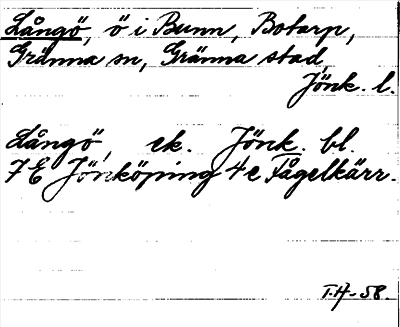 Långö, ö i Bunn, Botarp,
Gränna sn, Gränna stad,
Jönk. l.
Långö, ek. Jönk. bl.
7E Jönköping 4e Fågelkärr.
T.H-58.